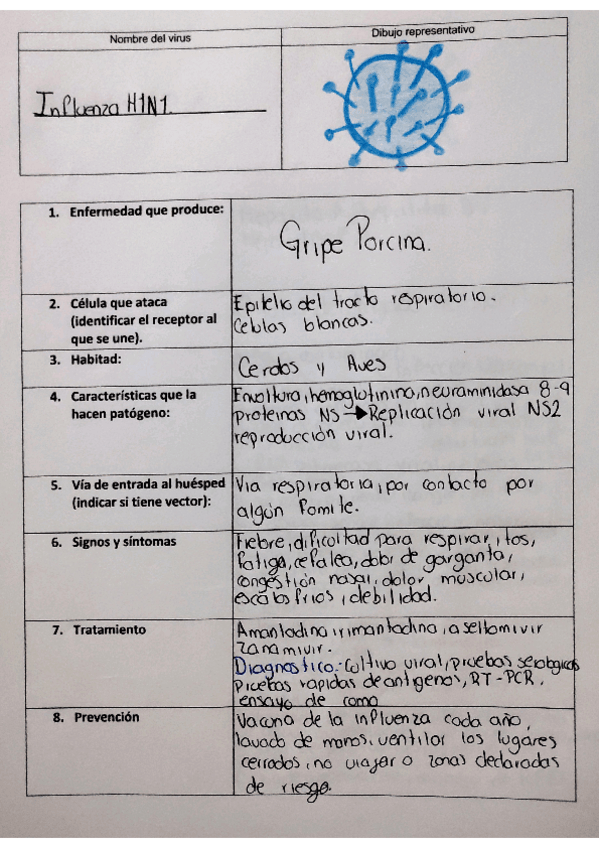 Nombre del virus
Dibujo representativo
Influenza H1N1.
1. Enfermedad que produce:
Gripe Porcina.
2. Célula que ataca
(identificar el receptor al
que se une).
Epitelio del tracto respiratorio.
Celulas blancas.
3. Habitad:
Cerdos y Aves
4. Características que la
hacen patógeno:
Envoltura, hemoglutinina, neuraminidasa 8-9
proteinas NS → Replicación viral NS2
reproducción viral.
5. Vía de entrada al huésped
(indicar si tiene vector):
Via respiratoria, por contacto por
algún fomite.
6. Signos y síntomas
Fiebre, dificultad para respirar, tos,
fatiga, cefalea, dolor de garganta,
congestión nasal, dolor muscular,
escalosfrios, debilidad.
7. Tratamiento
Amantadina, rimantadina, aseltamivir
zanamivir.
Diagnostico.- Cultivo viral, pruebas serologicas
Pruebas rapidas de antigenos, RT-PCR,
ensayo de como
8. Prevención
Vacuna de la influenza cada año,
lavado de manos, ventilar los lugares
cerrados, no viajar a zonas declaradas
de riesgo.